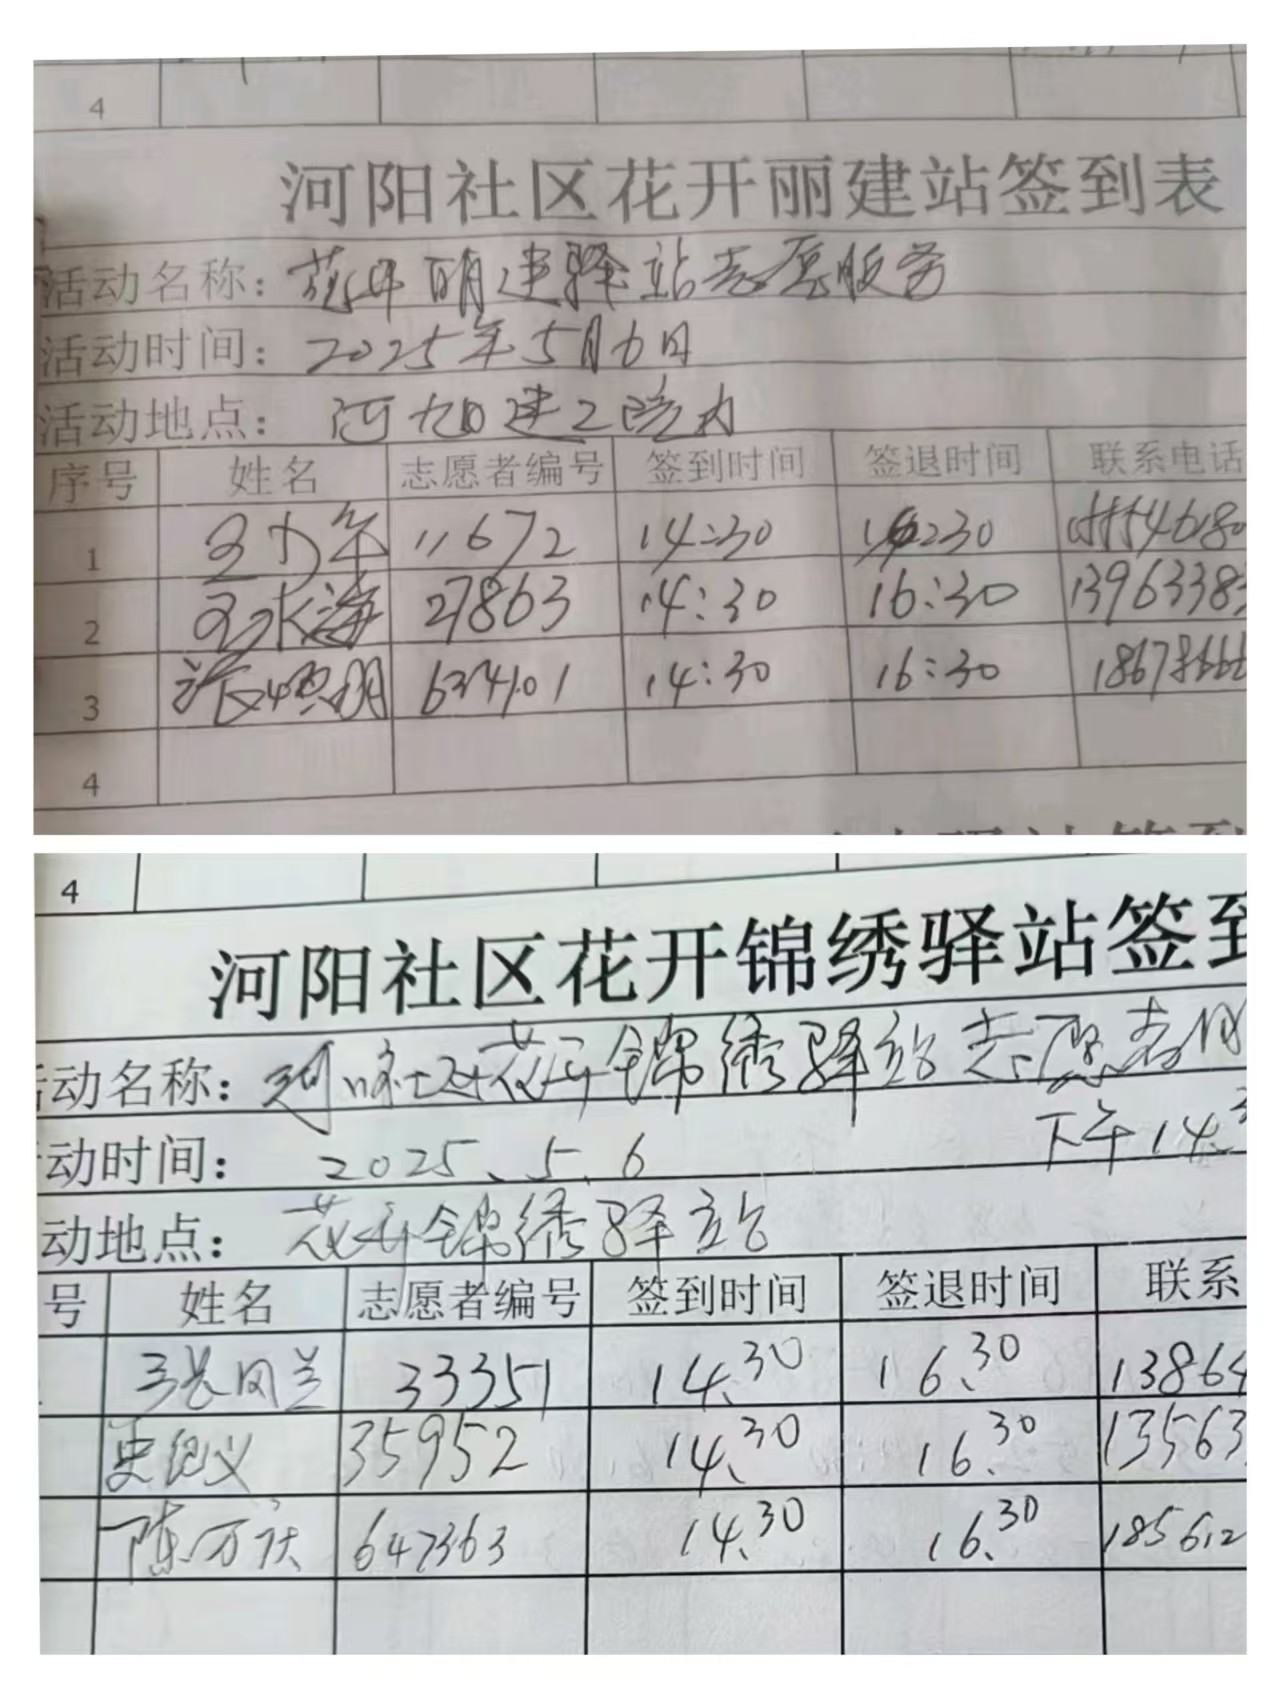 4
河阳社区花开丽建站签到表
活动名称：花开丽建驿站志愿服务
活动时间：2025年5月6日
活动地点：河阳建工院内
序号 姓名 志愿者编号 签到时间 签退时间 联系电话
1 11672 14:30 16:30
2 王永海 27863 14:30 16:30 1396338
3 14:30 16:30 18678666
4
4
河阳社区花开锦绣驿站签到
动名称：河阳社区花开锦绣驿站志愿者服
动时间：2025、5、6 下午14.3
动地点：花开锦绣驿站
号 姓名 志愿者编号 签到时间 签退时间 联系
33351 14.30 16.30 13864
35952 14.30 16.30 13563
陈万庆 647363 14.30 16.30 185612